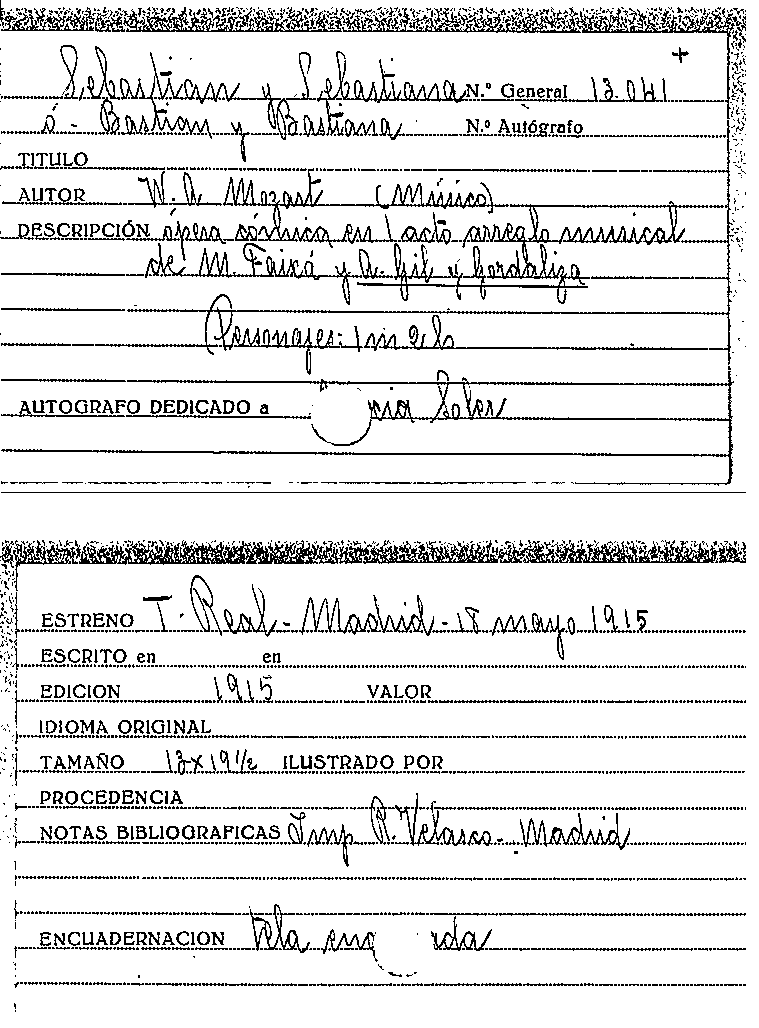 +
Sebastian y Sebastiana N.º General 13.041
ó - Bastian y Bastiana N.º Autógrafo
TITULO
AUTOR W. A. Mozart (Músico)
DESCRIPCIÓN ópera cómica en 1 acto arreglo musical
de M. Faixá y A. Gil y Gordaliza
Personajes: 1 m 2 h
AUTOGRAFO DEDICADO a Soler
ESTRENO T. Real - Madrid - 18 mayo 1915
ESCRITO en en
EDICION 1915 VALOR
IDIOMA ORIGINAL
TAMAÑO 13 x 19 1/2 ILUSTRADO POR
PROCEDENCIA
NOTAS BIBLIOGRAFICAS Imp R. Velasco - Madrid
ENCUADERNACION Tela